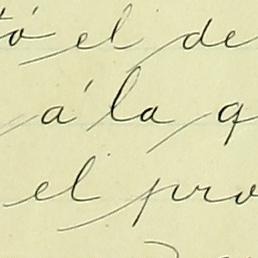 tó el de
á la q
el pro